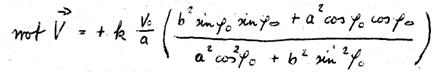 rot V⃗ = + k V₀/a ( (b² sin φ₀ sin φ₀ + a² cos φ₀ cos φ₀) / (a² cos² φ₀ + b² sin² φ₀) )